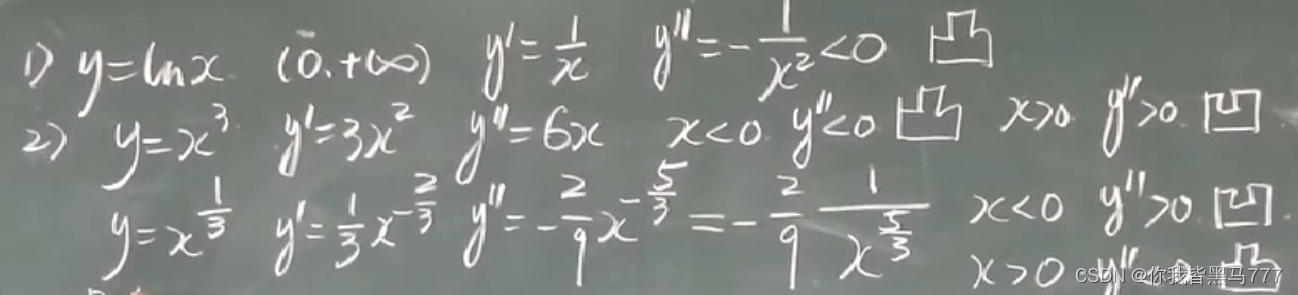 1) y=lnx (0.+∞) y'=1/x y''=-1/x²<0 凸
2) y=x³. y'=3x² y''=6x x<0 y''<0 凸 x>0 y''>0 凹
y=x^(1/3) y'=1/3 x^(-2/3) y''=-2/9 x^(-5/3) = -2/9 1/x^(5/3) x<0 y''>0 凹.
x>0 y''<0 凸
CSDN @你我皆黑马777